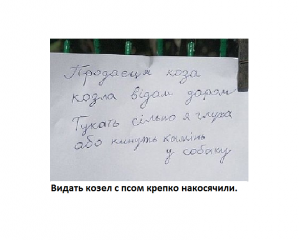 Продаєця коза
козла відам даром
Тукать сільно я глуха
або кинуть камінь
у собаку
Видать козел с псом крепко накосячили.